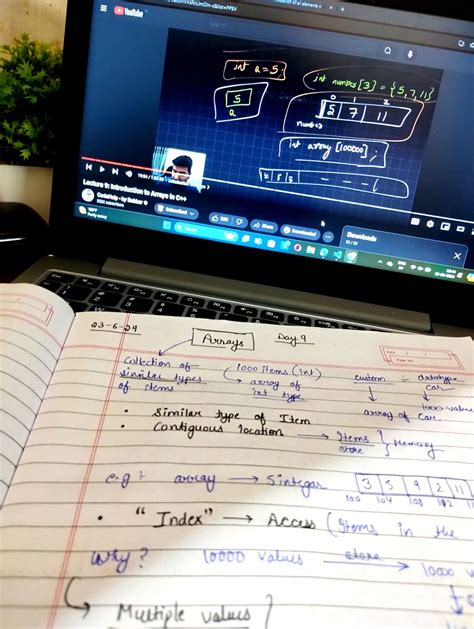 YouTube
int a = 5;
int number[3] = {5,7,11}
5
a
0 1 2
5 7 11
number
int array [100000];
Lecture 9: Introduction to Arrays in C++
CodeHelp - by Babbar
Subscribed
Share
Downloads
23-6-24
Arrays
Day 9
Collection of
similar types
of items.
1000 items (int)
array of
int type
custom
datatype
car
array of car
1000 values
• Similar type of Item
• Contiguous location → Items store } Memory
e.g array → 5 integer
3 5 9 2 11
100 104 108
• "Index" → Access (Items in the
Why? 10000 values store
Multiple values